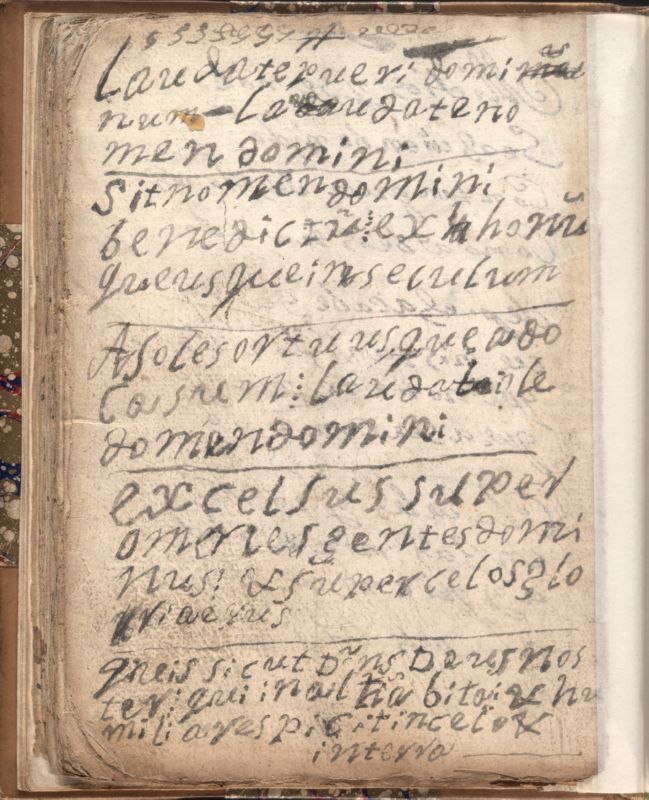 Laudatepueri domi
num Laudateno
mendomini
sitnomendomini
benedictũ: ex honũ
queusqueinseculum
Asolesortuusqueado
Cassum: Laudabile
domendomini
excelsussuper
omenesgentesdomi
nus: & supercelosglo
riaeius
queis sicut Dñs Deusnos
ter: quiinaltis abitat & hu
miliarespicitincelo&
interra